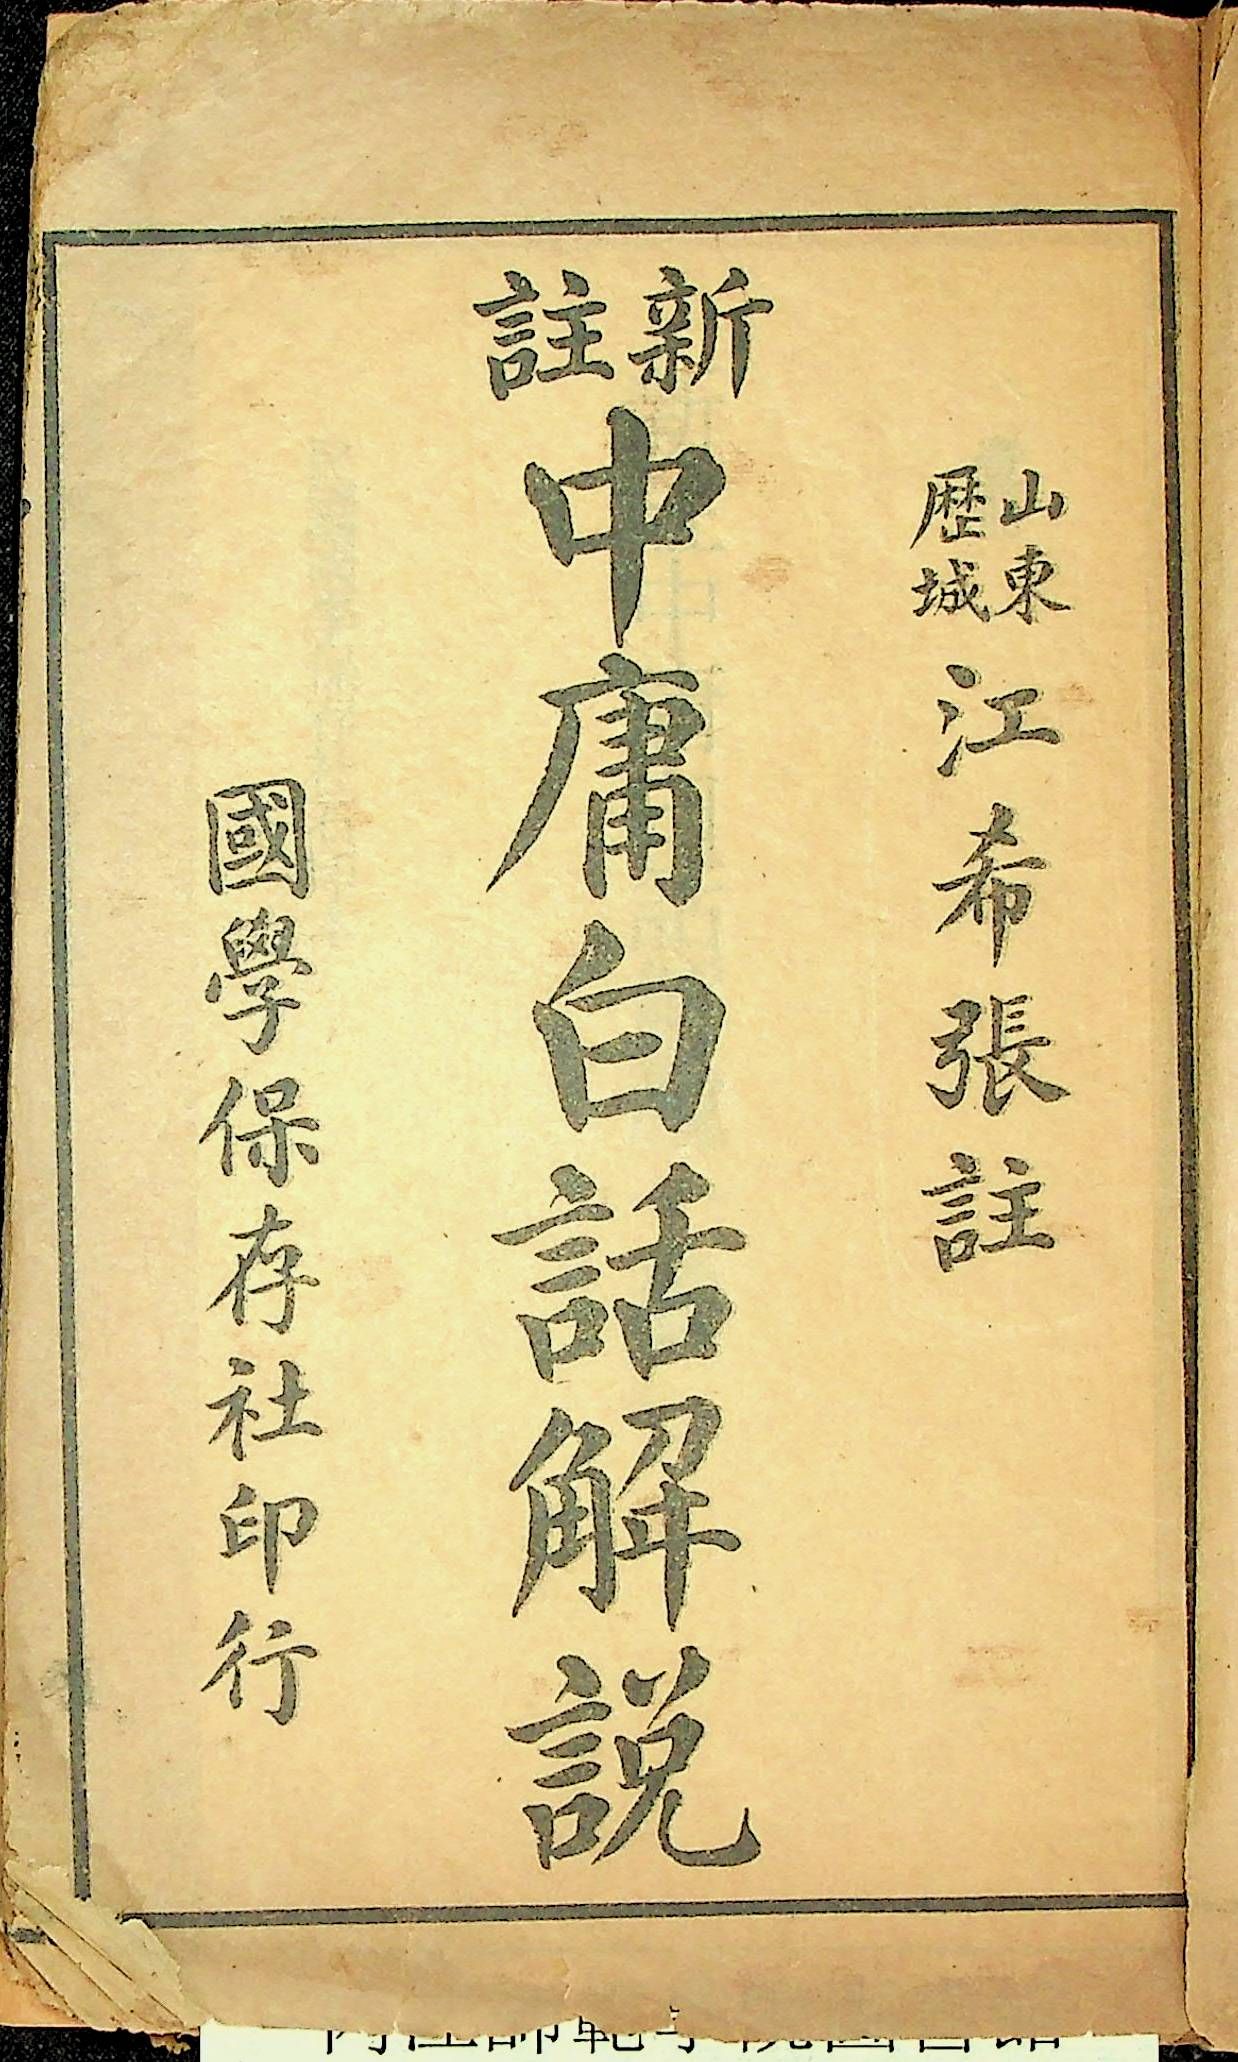 山東
歷城
江希張註
新註
中庸白話解說
國學保存社印行